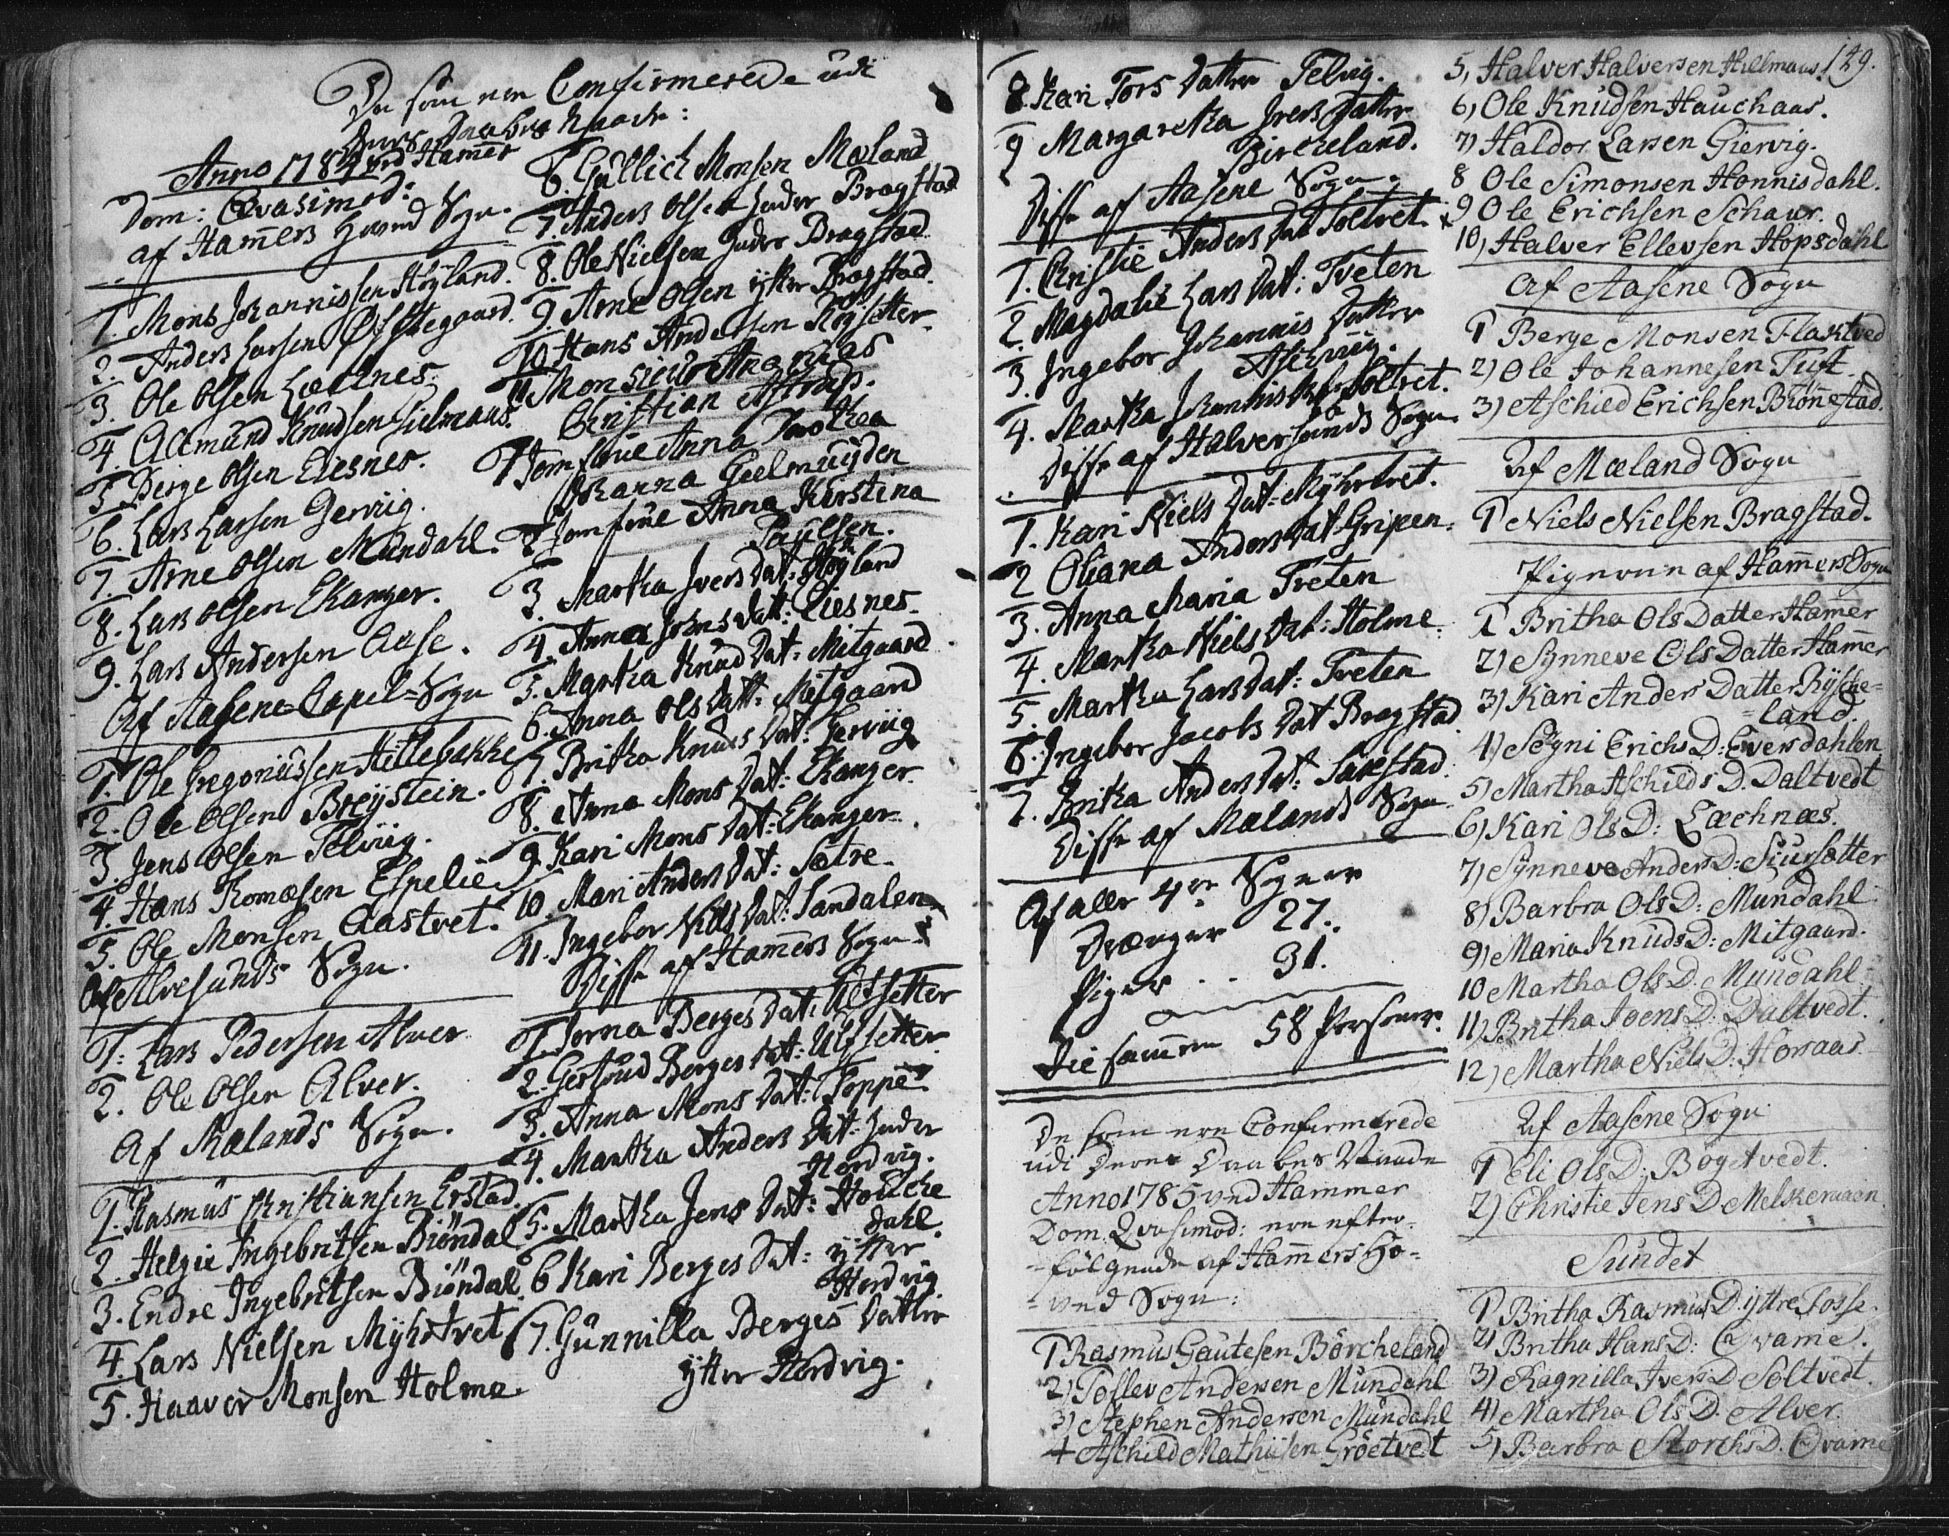 De som ere Confirmerede udi
deres Daabes Naade:
Anno 1784 ved Hammer
Dom: Qvasimod:
af Hammers Hoved Sogn.
1. Mons Johannissen Høyland.
2. Anders Larsen Østtegaard.
3. Ole Olsen Læchnes.
4. Allmund Knudsen Hielmaas.
5. Berge Olsen Eiesnes.
6. Lars Larsen Gervig.
7. Arne Olsen Mundahl.
8. Lars Olsen Ekanger.
9. Lars Andersen Aase.
Af Aasene Capel-Sogn
1. Ole Gregoriussen Hillebakke
2. Ole Olsen Breÿstein.
3. Jens Olsen Telviig.
4. Hans Thomæsen Espelie
5. Ole Monsen Aastvet.
Af Alvesunds Sogn.
1. Lars Pedersen Alver
2. Ole Olsen Alver.
Af Mælands Sogn.
1. Rasmus Christiansen Erstad.
2. Helgie Ingebritsen Biöndal
3. Endre Ingebritsen Biöndal.
4. Lars Nielsen Mÿhrtvet
5. Haaver Monsen Holme
6. Gullich Monsen Mæland
7. Anders Olsen Indre Bragstad
8. Ole Nielsen Indre Bragstad
9. Arne Olsen ÿtter Bragstad.
10. Hans Andersen Röÿsetter
11. Monsieur Ananias
Christian Astrup.
1 Jomfrue Anna Dorothea
Johanna Geelmuijden
2 Jomfrue Anna Kirstina
Paulsen.
3. Martha Ivers Dat: Høÿland
4. Anna Johns Datt: Eiesnes
5. Martha Knud Dat: Mitgaard
6. Anna Ols Datt: Mitgaard
7. Britha Knuds Dat: Gerviig
8. Anna Mons Dat: Ekanger
9. Kari Mons Dat: Ekanger
10. Mari Anders Dat: Sætre
11. Ingebor Niels Dat: Sandalen
Disse af Hamers Sogn.
1. Jorna Berges Dat: Ulfsetter
2. Gertrud Berges Dat: Ulfsetter
3. Anna Mons Dat: Toppe
4. Martha Anders Dat: Indre
Hordvig.
5. Martha Jens Dat: Houke
dahl.
6 Kari Berges Dat: ÿtter
Hordvig
7. Gunnilla Berges Datter
ÿtter Hordvig.
8. Kari Tors Datter Telvig.
9 Margaretha Ivers Datter
Birckeland.
Disse af Aasene Sogn.
1. Christie Anders Dat Soltvet.
2. Magdalie Lars Dat: Tveten
3. Ingebor Johannis Datter
Aschviig.
4. Martha Johannis Dat: Soltvet.
Disse af Halversunds Sogn
1. Kari Niels Dat: Mÿhrtvet.
2 Oliana Anders Dat Gripen.
3. Anna Maria Tveten
4. Martha Niels Dat: Holme.
5. Martha Lars Dat: Tveten
6. Ingebor Jacobs Dat Bragstad
7. Britha Anders Dat: Sagstad.
Disse af Mælands Sogn
Af aller 4re Sogner
Drænger 27.
Piger .. 31.
Tilsammen 58 Personer.
De som ere Confirmerede
udi Deres Daabes Naade
Anno 1785 ved Hammer
Dom. Qvasimod: ere efter-
følgende af Hammers Ho-
ved Sogn:
1 Rasmus Gautesen Börcheland
2) Tostev Andersen Mundahl
3) Stephen Andersen Mundahl
4 Aschild Mathisen Gröetvedt
149.
5, Halver Halversen Hillmaas
6, Ole Knudsen Hauchaas.
7) Haldor Larsen Giervig.
8 Ole Simonsen Honnisdahl.
9 Ole Erichsen Schaur.
10, Halver Ellevsen Hopsdahl
Af Aasene Sogn
1 Berge Monsen Flaktved
2) Ole Johannesen Tuft
3) Aschied Erichsen Brönestad.
Af Mæland Sogn
1 Niels Nielsen Bragstad.
Pigerne af Hamers Sogn
1 Britha Ols Datter Hamer
2) Synneve Ols Datter Hamer
3) Kari Anders Datter Rÿsche-
land.
4) Sögni Erichs D: Eversdahlen
5) Martha Aschilds D. Daltvedt
6) Kari Ols D: Læchnæs.
7) Synneve Anders D: Siursætter
8) Barbra Ols D: Mundahl
9) Maria Knuds D: Mitgaard.
10 Martha Ols D. Mundahl
11) Britha Joens D: Daltvedt.
12) Martha Niels D: Horraas
Af Aasene Sogn
1 Eli Ols D: Bögetvedt.
2) Christie Jens D Melkeraaen
Sundet
1 Britha Rasmus D: yttre Fosse.
2) Britha Hans D: Qvame.
3) Ragnilla Ivers D Soltvedt.
4) Martha Ols D. Alver.
5) Barbra Storchs D. Qvame